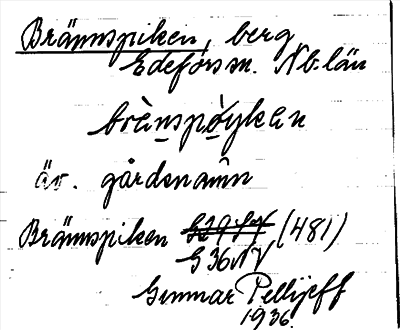 Brännspiken, berg
Edefors sn. Nb. län
brä̀nspǿykən
äv. gårdsnamn
Brännspiken (481)
G 36 NV
Gunnar Pellijeff
1936.